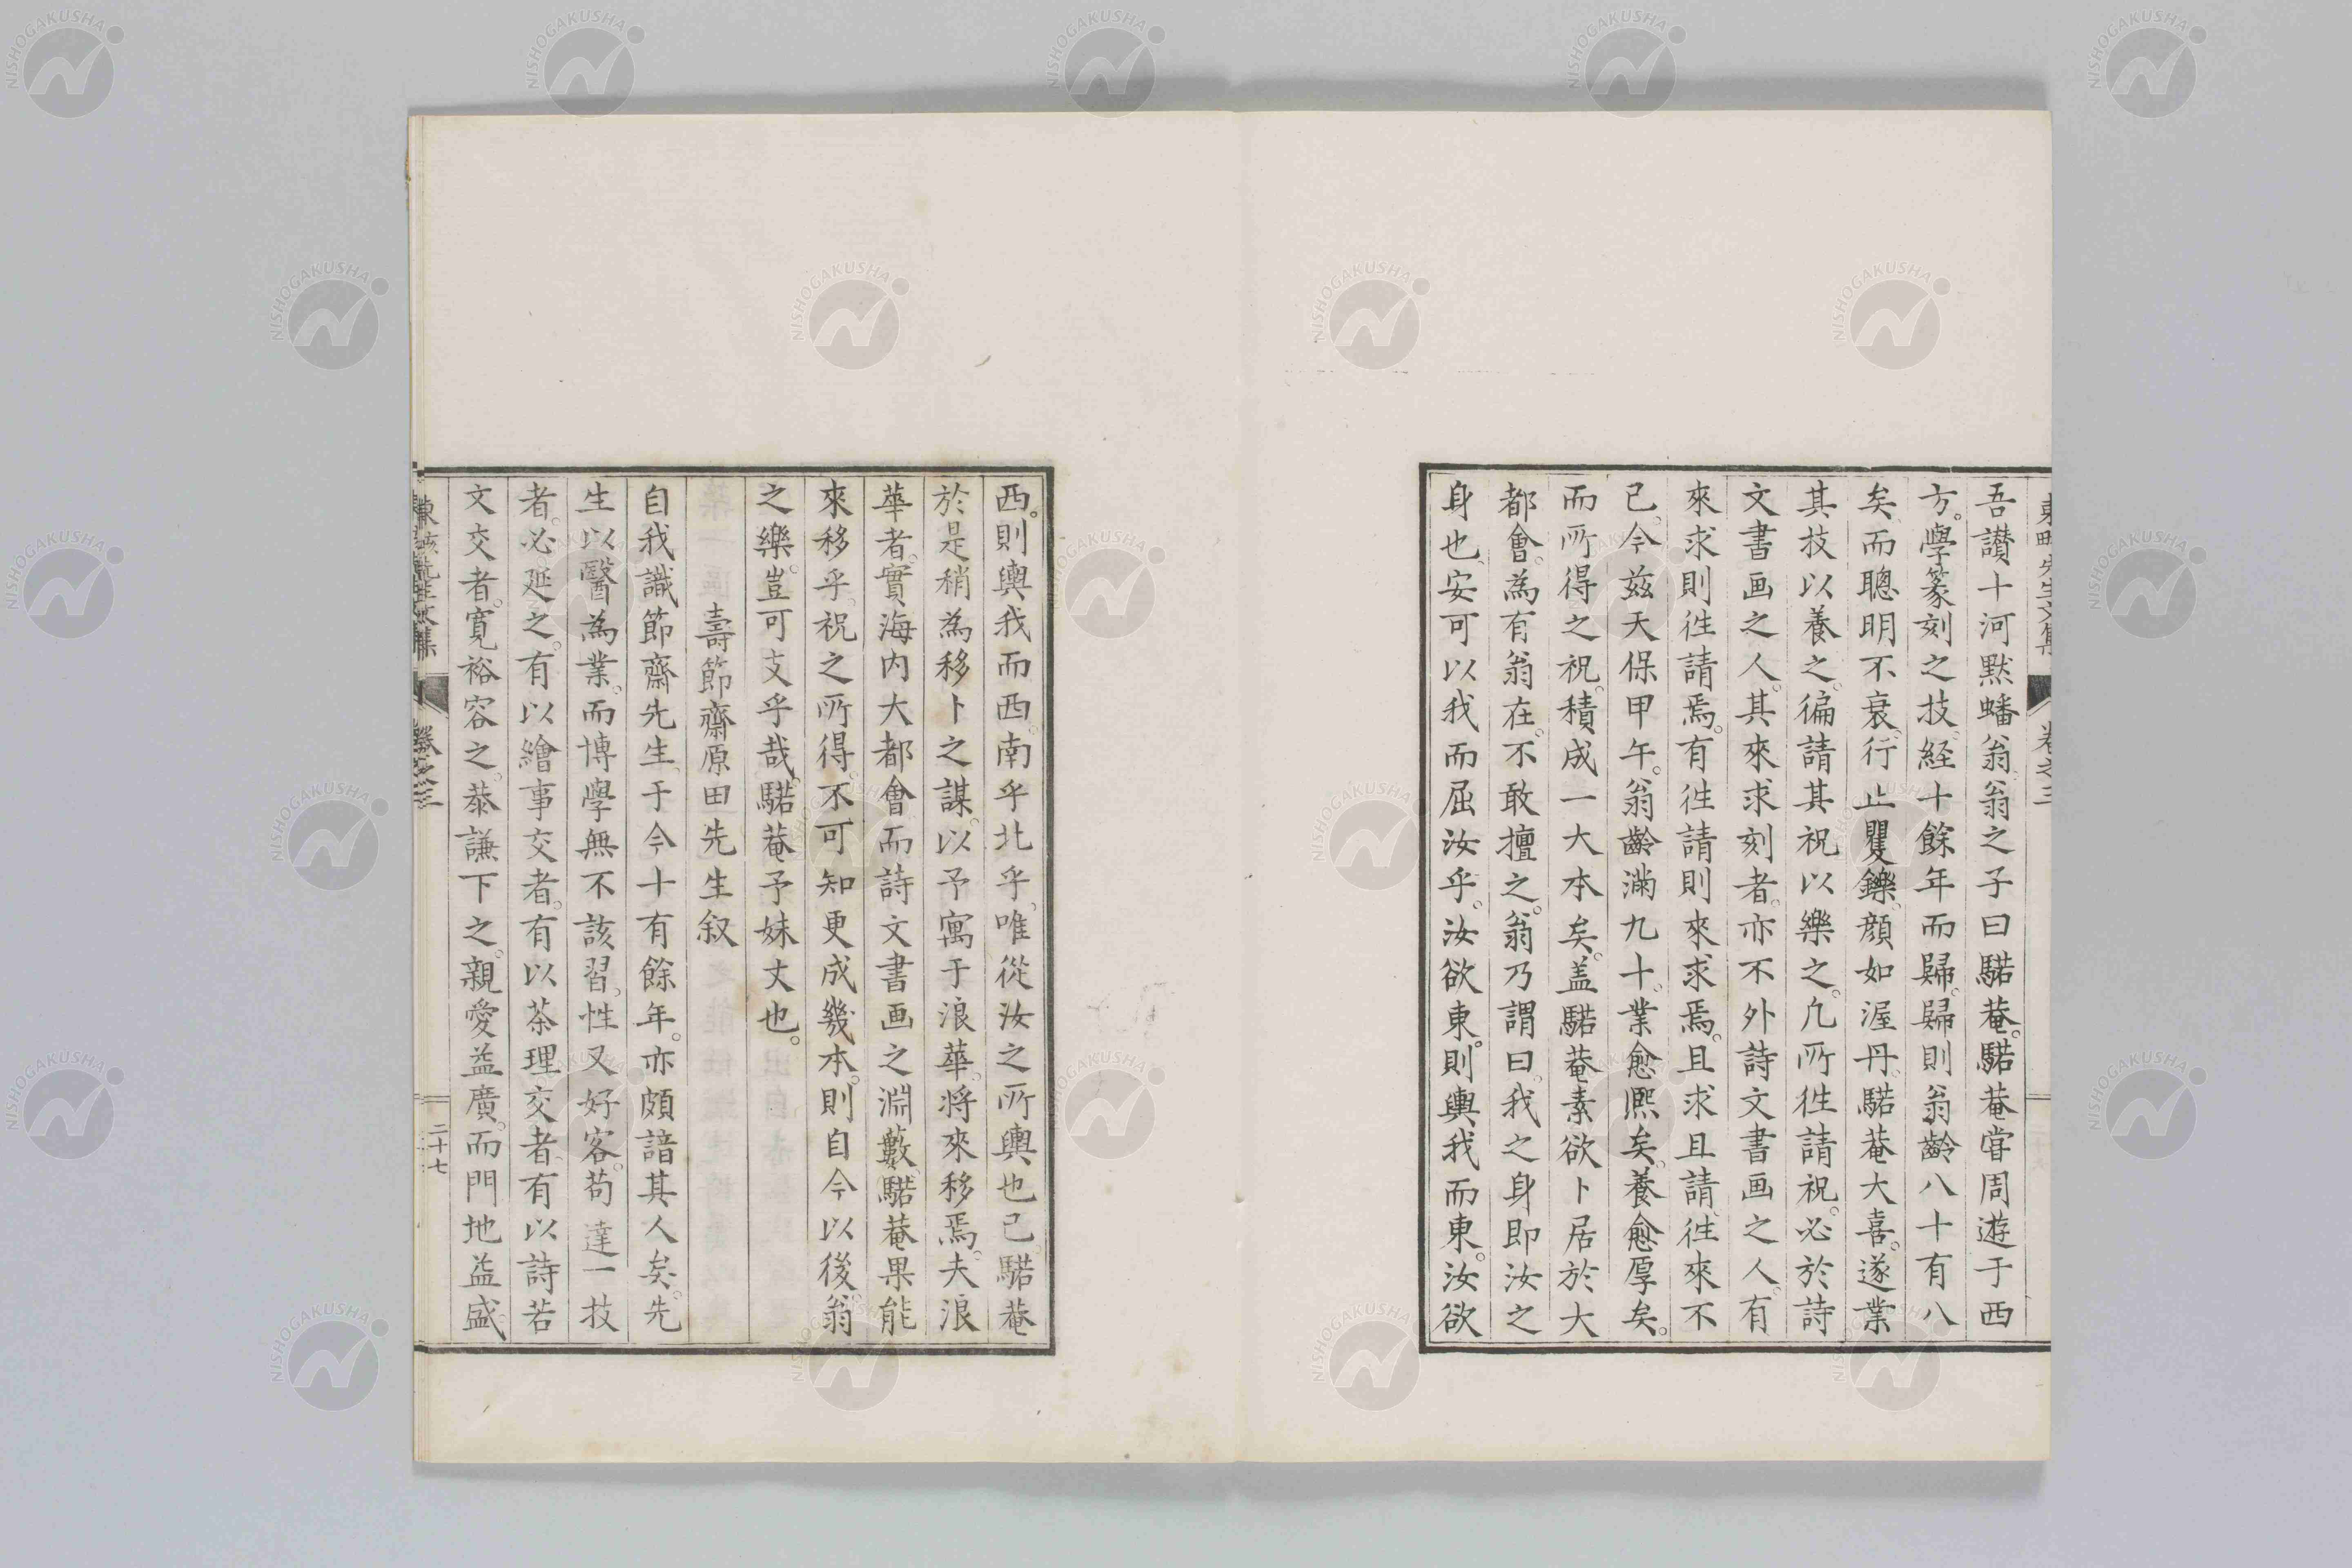 吾讃十河黙蟠翁翁之子曰驝菴。驝菴甞周遊于西
方。學篆刻之技。経十餘年而歸。歸則翁齡八十有八
矣。而聰明不衰。行止矍鑠。顔如渥丹。驝菴大喜。遂業
其技以養之。徧請其祝以樂之。凢所徃請祝。必於詩
文書画之人。其來求刻者。亦不外詩文書画之人。有
來求則徃請焉。有徃請則來求焉。且求且請。徃來不
已。今兹天保甲午。翁齡滿九十。業愈熈矣。養愈厚矣。
而所得之祝。積成一大本矣。盖驝菴素欲卜居於大
都會。為有翁在。不敢擅之。翁乃謂曰。我之身即汝之
身也。安可以我而屈汝乎。汝欲東。則輿我而東。汝欲
西。則輿我而西。南乎北乎。唯從汝之所輿也已。驝菴
於是稍為移卜之謀。以予寓于浪華。将來移焉。夫浪
華者。實海内大都會而詩文書画之淵藪。驝菴果能
來移乎。祝之所得。不可知更成幾本。則自今以後。翁
之樂。豈可支乎哉。驝菴予妹丈也。
壽節齋原田先生叙
自我識節齋先生。于今十有餘年。亦頗諳其人矣。先
生以醫為業。而博學無不該習。性又好客。苟達一技
者。必延之。有以繪事交者。有以茶理交者。有以詩若
文交者。寛裕容之。恭謙下之。親愛益廣。而門地益盛
卷之三
二十七